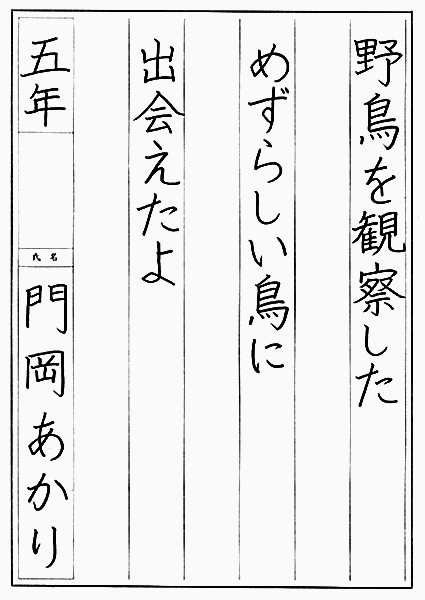 野鳥を観察した
めずらしい鳥に
出会えたよ
五年
氏名
門岡あかり